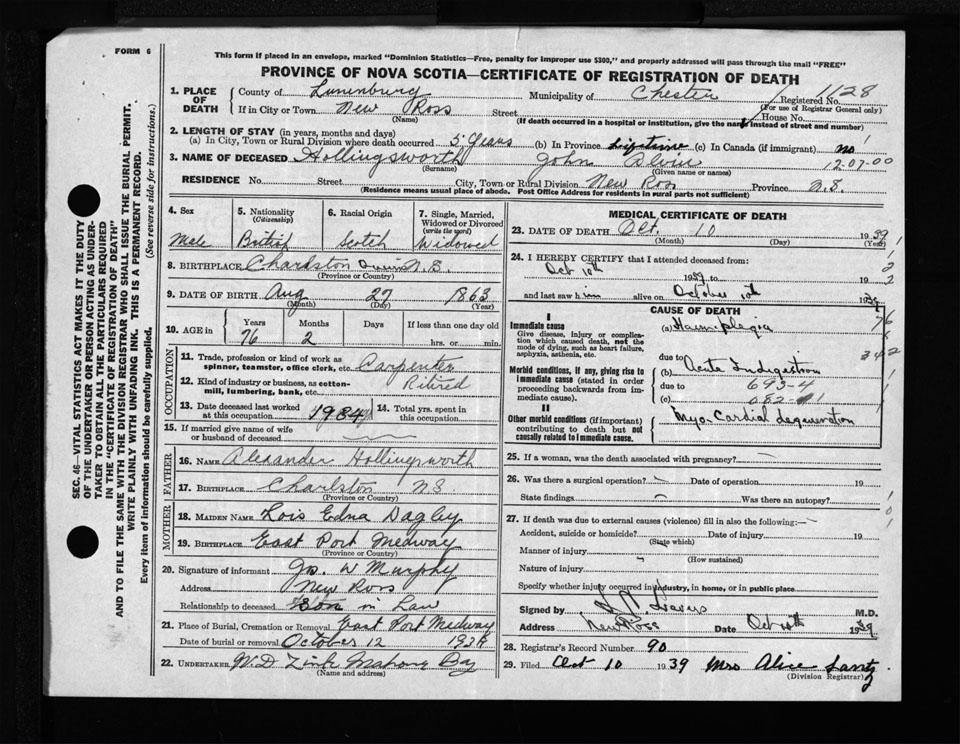 FORM 6
This form if placed in an envelope, marked "Dominion Statistics—Free, penalty for improper use $300," and properly addressed will pass through the mail "FREE"
PROVINCE OF NOVA SCOTIA—CERTIFICATE OF REGISTRATION OF DEATH
1. PLACE OF DEATH
County of Lunenburg Municipality of Chester Registered No. 1128
(For use of Registrar General only)
If in City or Town New Ross Street House No.
(Name) (If death occurred in a hospital or institution, give the name instead of street and number)
2. LENGTH OF STAY (in years, months and days)
(a) In City, Town or Rural Division where death occurred 5 years (b) In Province Lifetime (c) In Canada (if immigrant) no
3. NAME OF DECEASED Hollingsworth John Alvin 12-07-00
(Surname) (Given name or names)
RESIDENCE No. Street City, Town or Rural Division New Ross Province N.S
(Residence means usual place of abode. Post Office Address for residents in rural parts not sufficient)
4. Sex
Male
5. Nationality
(Citizenship)
British
6. Racial Origin
Scotch
7. Single, Married, Widowed or Divorced
(write the word)
Widowed
8. BIRTHPLACE Charlston N.S.
(Province or Country)
9. DATE OF BIRTH Aug 27 1863
(Month) (Day) (Year)
10. AGE in
Years Months Days If less than one day old
76 2 hrs. or min.
OCCUPATION
11. Trade, profession or kind of work as spinner, teamster, office clerk, etc. Carpenter
12. Kind of industry or business, as cotton-mill, lumbering, bank, etc. Retired
13. Date deceased last worked at this occupation 1934
14. Total yrs. spent in this occupation
15. If married give name of wife or husband of deceased
FATHER
16. NAME Alexander Hollingsworth
17. BIRTHPLACE Charlston NS
(Province or Country)
MOTHER
18. MAIDEN NAME Lois Edna Dagley
19. BIRTHPLACE East Port Medway
(Province or Country)
20. Signature of informant Jn. W Murphy
Address New Ross
Relationship to deceased Son in Law
21. Place of Burial, Cremation or Removal East Port Medway
Date of burial or removal October 12 1939
22. UNDERTAKER M.D. Zink Mahone Bay
(Name and address)
MEDICAL CERTIFICATE OF DEATH
23. DATE OF DEATH Oct. 10 1939
(Month) (Day) (Year)
24. I HEREBY CERTIFY that I attended deceased from:
Oct 10th 1939 to 19
and last saw him alive on October 10th 1939
CAUSE OF DEATH
I
Immediate cause
Give disease, injury or complication which caused death, not the mode of dying, such as heart failure, asphyxia, asthenia, etc.
(a) Haemiplegia
due to
Morbid conditions, if any, giving rise to immediate cause (stated in order proceeding backwards from immediate cause).
(b) Acute Indigestion
due to 693-4
(c) 682-1
II
Other morbid conditions (if important) contributing to death but not causally related to immediate cause.
Myo-Cardial degeneration
76
342
25. If a woman, was the death associated with pregnancy?
26. Was there a surgical operation? Date of operation 19
State findings Was there an autopsy?
27. If death was due to external causes (violence) fill in also the following:
Accident, suicide or homicide? Date of injury 19
(State which)
Manner of injury
(How sustained)
Nature of injury
Specify whether injury occurred in industry, in home, or in public place
Signed by M.D.
Address New Ross Date Oct 10th 1939
28. Registrar's Record Number 90
29. Filed Oct 10 1939 Mrs Alice Lantz
(Division Registrar)
SEC. 46—VITAL STATISTICS ACT MAKES IT THE DUTY
OF THE UNDERTAKER OR PERSON ACTING AS UNDER-
TAKER TO OBTAIN ALL THE PARTICULARS REQUIRED
IN THE "CERTIFICATE OF REGISTRATION OF DEATH"
AND TO FILE THE SAME WITH THE DIVISION REGISTRAR WHO SHALL ISSUE THE BURIAL PERMIT.
WRITE PLAINLY WITH UNFADING INK. THIS IS A PERMANENT RECORD.
Every item of information should be carefully supplied. (See reverse side for instructions.)